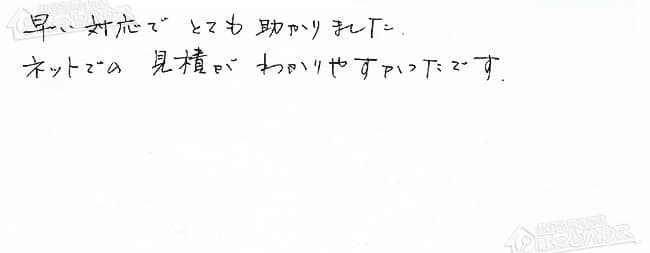 早い対応でとても助かりました.
ネットでの見積がわかりやすかったです.